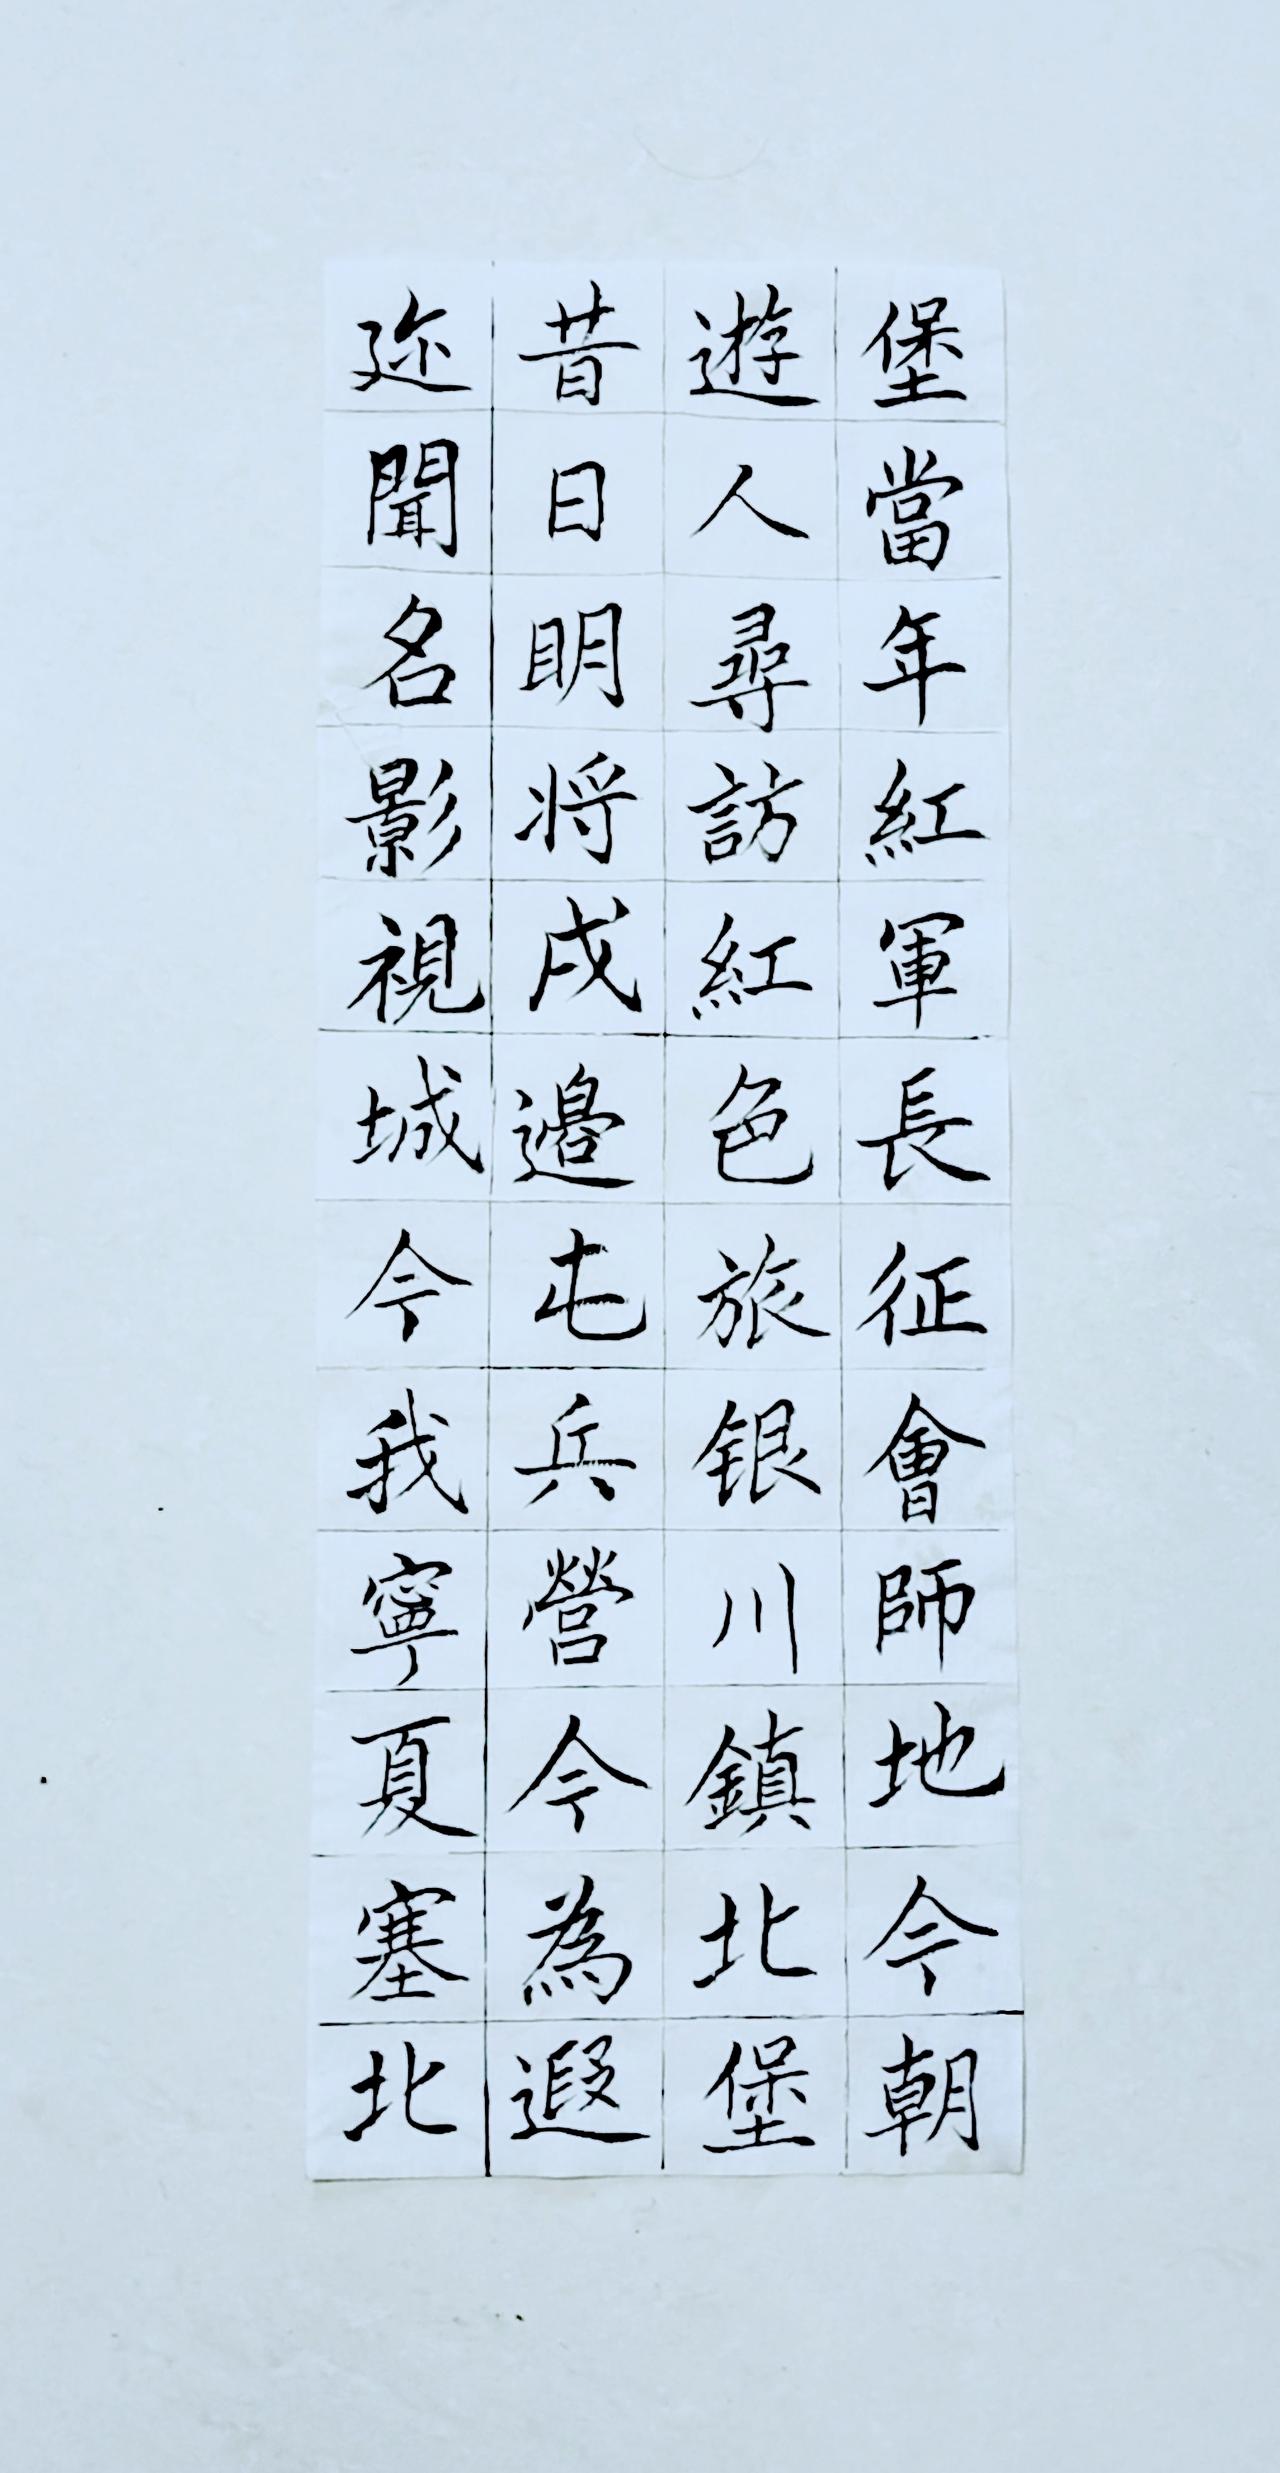 堡當年紅軍長征會師地今朝
遊人尋訪紅色旅银川鎮北堡
昔日明将戍邊屯兵營今為遐
迩聞名影視城今我寧夏塞北